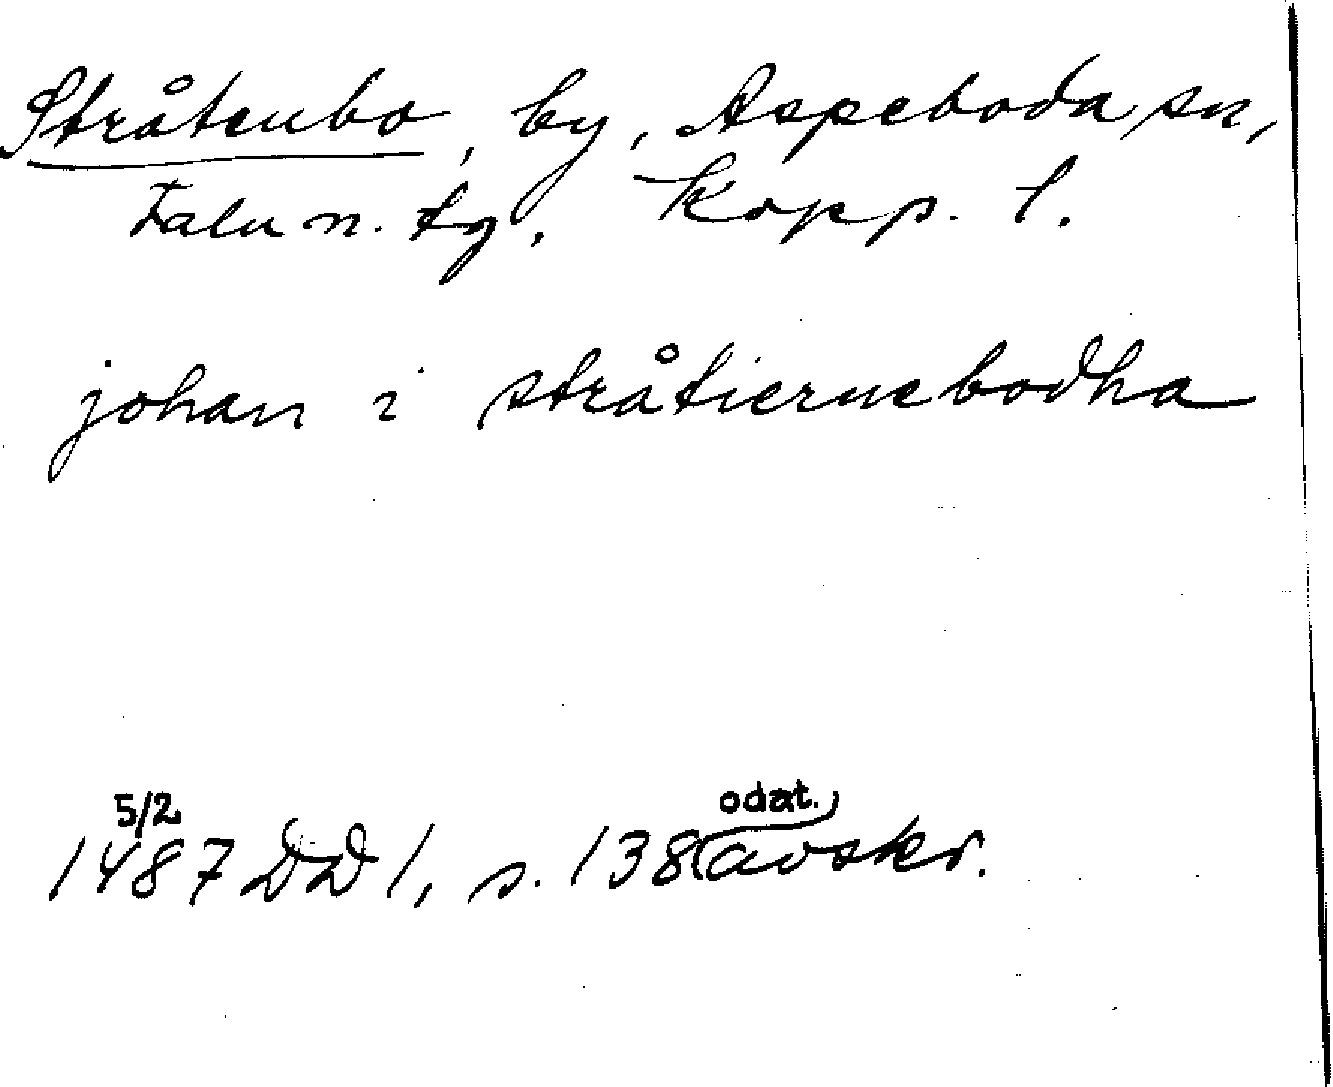 Stråtenbo, by, Aspeboda sn,
Falu n. tg. Kopp. l.
johan i stråtiernebodha
5/2 odat.
1487 DD 1, s. 138 avskr.